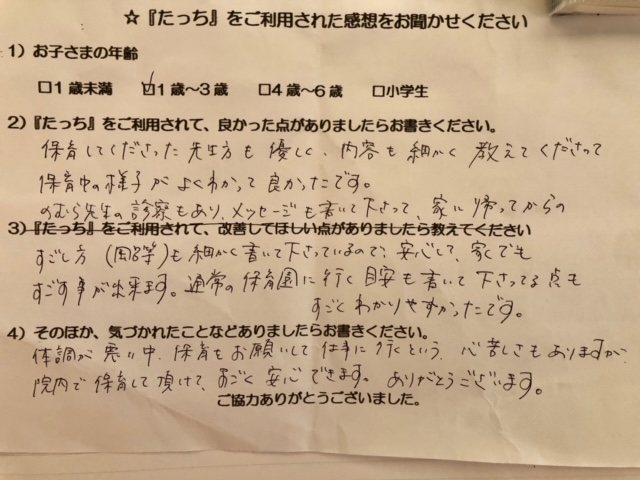 ☆『たっち』をご利用された感想をお聞かせください
1）お子さまの年齢
□1歳未満 ☑1歳～3歳 □4歳～6歳 □小学生
2）『たっち』をご利用されて、良かった点がありましたらお書きください。
保育してくださった先生方も優しく、内容も細かく教えてくださって
保育中の様子がよくわかって良かったです。
のむら先生の診察もあり、メッセージも書いて下さって、家に帰ってからの
3）『たっち』をご利用されて、改善してほしい点がありましたら教えてください
すごし方（風呂等）も細かく書いて下さっているので、安心して、家でも
すごす事が出来ます。通常の保育園に行く目安も書いて下さってる点も
すごくわかりやすかったです。
4）そのほか、気づかれたことなどありましたらお書きください。
体調が悪い中、保育をお願いして仕事に行くという、心苦しさもありますが、
院内で保育して頂けて、すごく安心できます。ありがとうございます。
ご協力ありがとうございました。